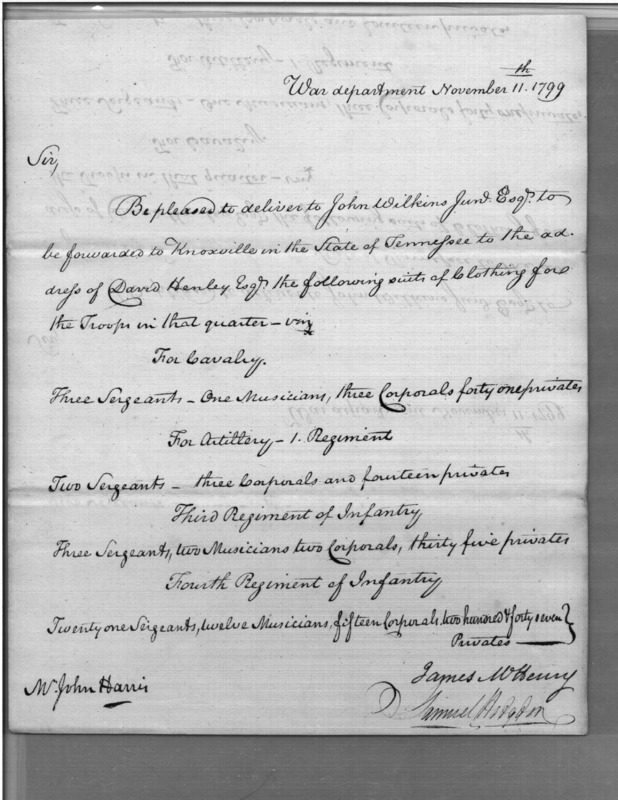 War department November 11.th 1799
Sir,
Be pleased to deliver to John Wilkins Junr. Esqr. to
be forwarded to Knoxville in the State of Tennessee to the ad-
dress of David Henley Esqr. the following suits of Clothing for
the Troops in that quarter – viz
For Cavalry.
Three Sergeants – One Musicians, three Corporals forty one privates
For Artillery – 1. Regiment
Two Sergeants – three Corporals and fourteen privates
Third Regiment of Infantry
Three Sergeants, two Musicians two Corporals, thirty five privates
Fourth Regiment of Infantry
Twenty one Sergeants, twelve Musicians, fifteen Corporals, two hundred & forty seven }
Privates —
James McHenry
Mr. John Harris
Samuel Hodgdon